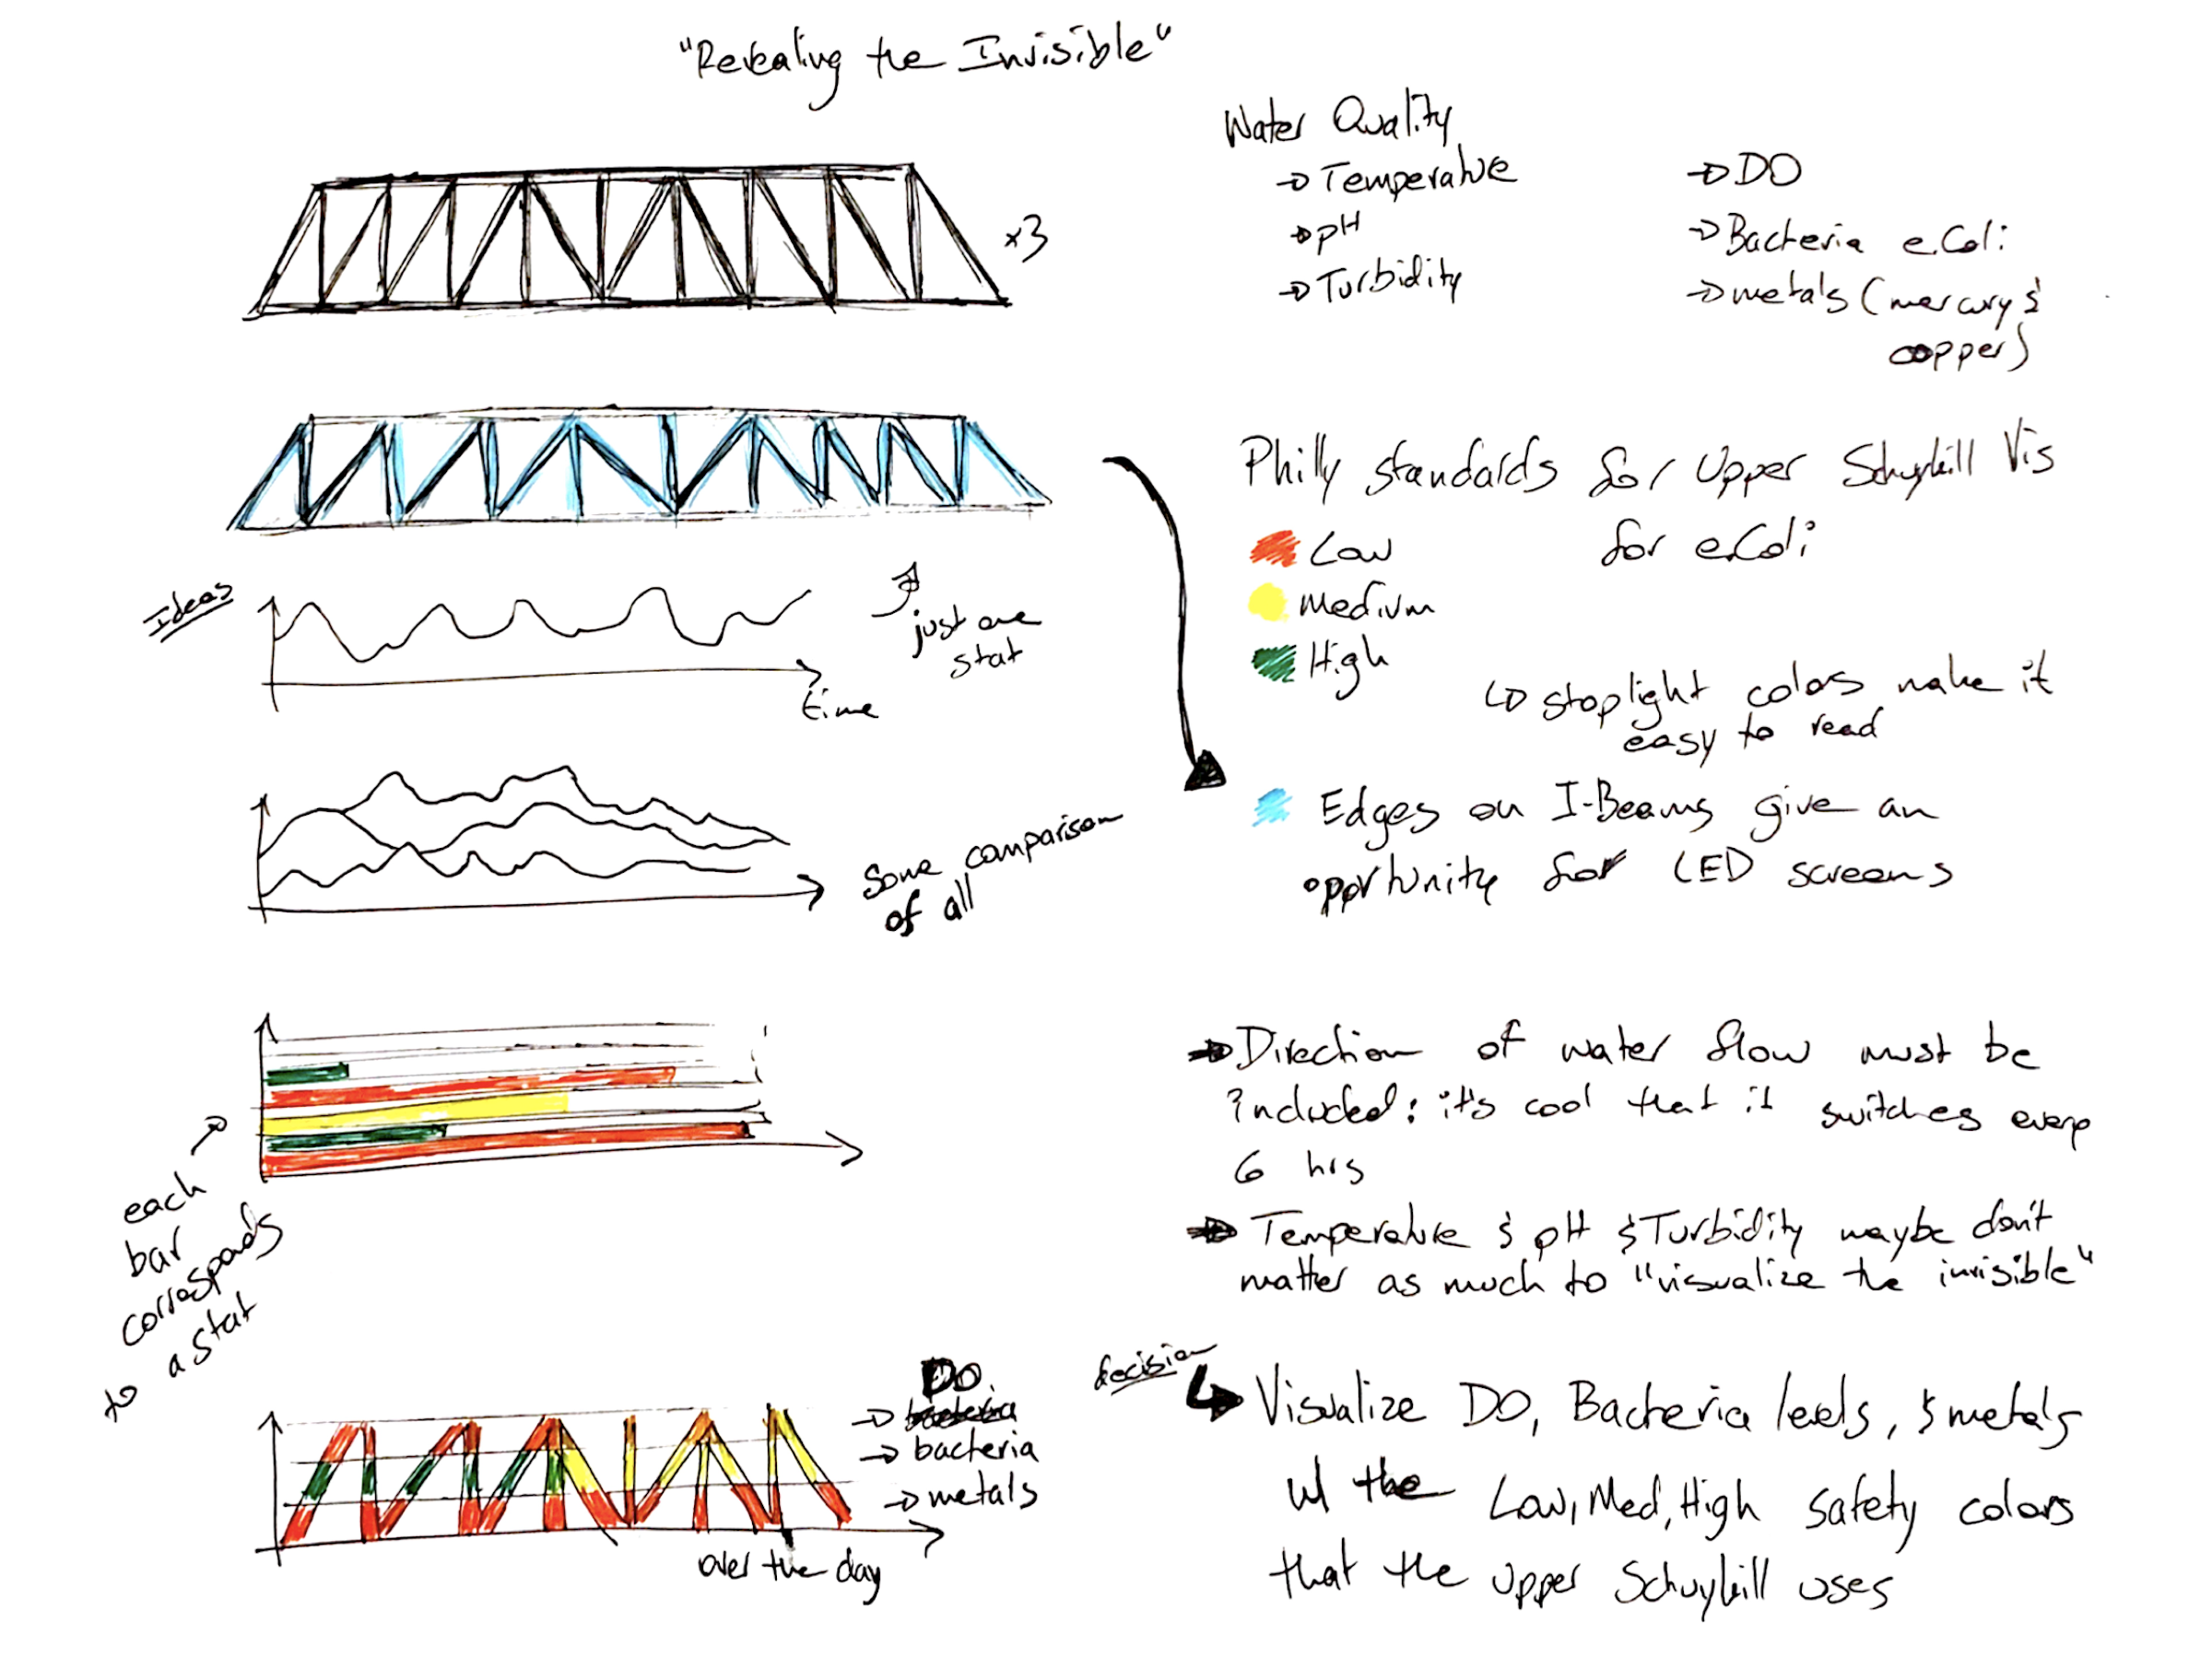 "Revealing the Invisible"
Water Quality
→ Temperature
→ pH
→ Turbidity
→ DO
→ Bacteria e.Coli
→ metals (mercury &
copper)
x3
Philly standards for Upper Schuylkill Vis
for e.Coli
Low
Medium
High
↳ stoplight colors make it
easy to read
Edges on I-Beams give an
opportunity for LED screens
Ideas
time
just one
stat
Some comparison
of all
each
bar
corresponds
to a stat
→ Direction of water flow must be
included: it's cool that it switches every
6 hrs
→ Temperature & pH & Turbidity maybe don't
matter as much to "visualize the invisible"
decision
↳ Visualize DO, Bacteria levels, & metals
w/ the Low, Med, High safety colors
that the Upper Schuylkill uses
DO
→ bacteria
→ bacteria
→ metals
over the day